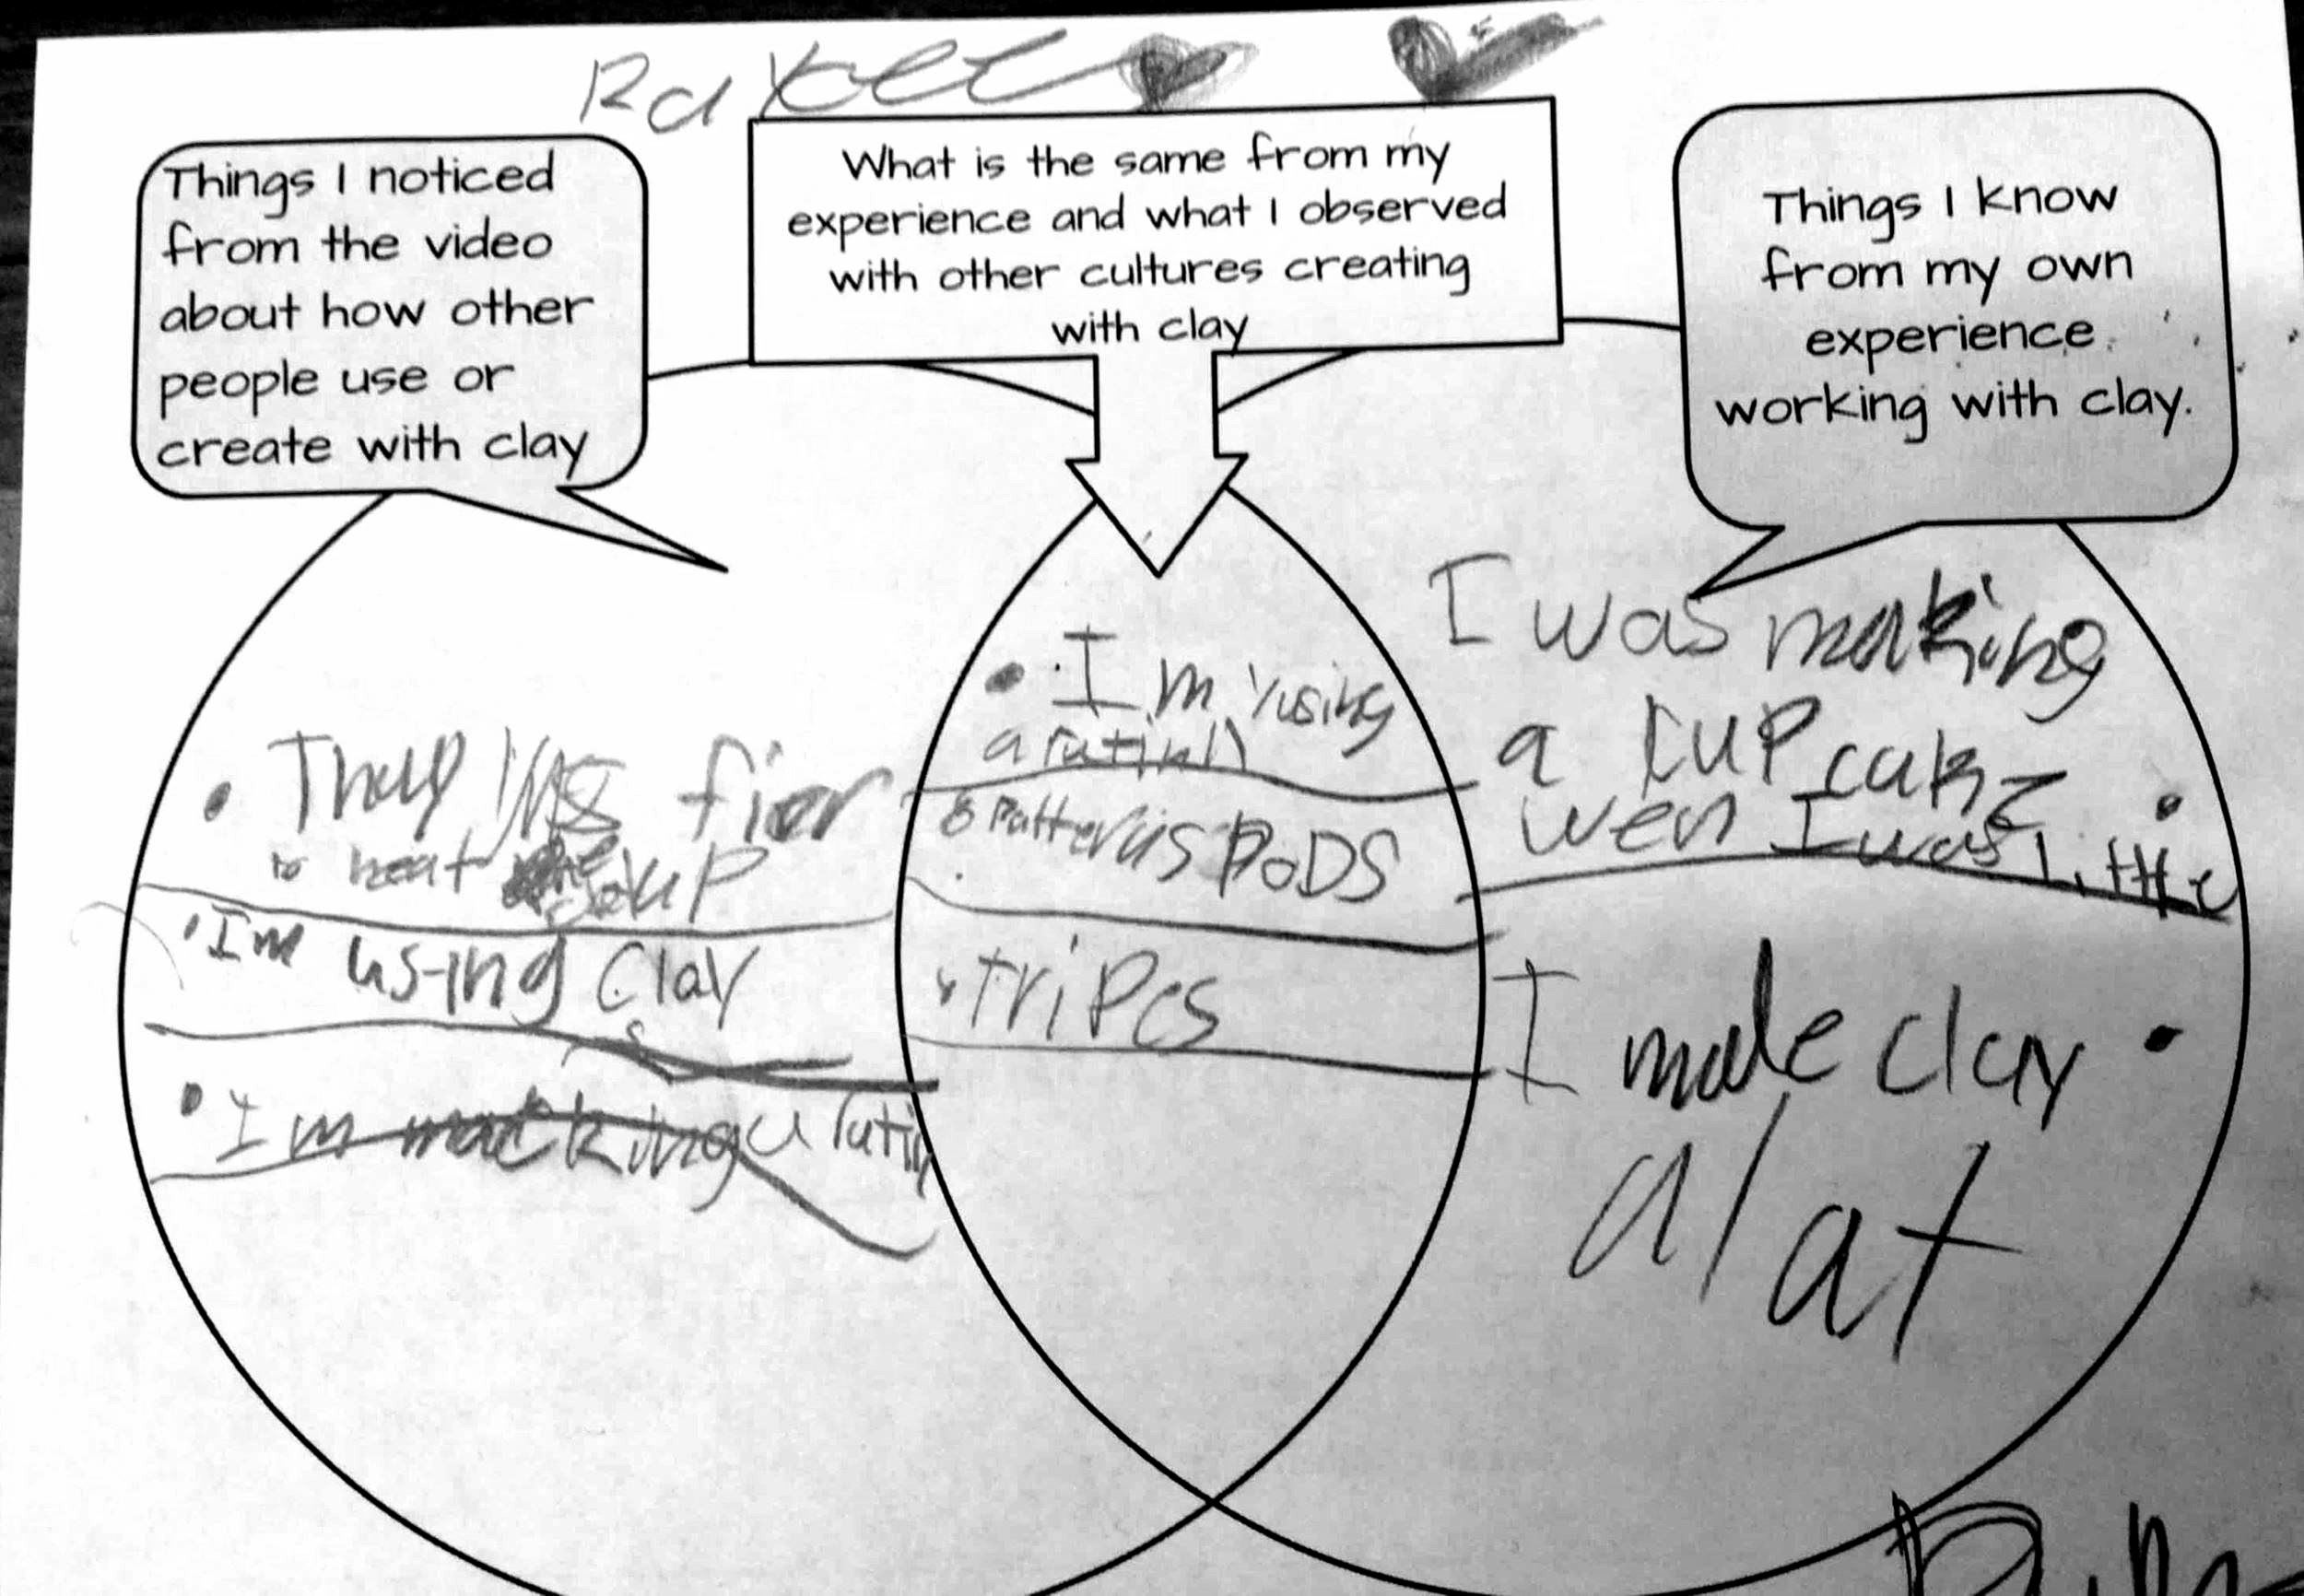 Things I noticed
from the video
about how other
people use or
create with clay
What is the same from my
experience and what I observed
with other cultures creating
with clay
Things I know
from my own
experience
working with clay.
• Thay fier
to heat up
• Im using Clay
• Im macking a
• Im yusing
a
Patterns DoDS
• tripes
I was making
a cup cake
wen I was little
I made clay
a lat